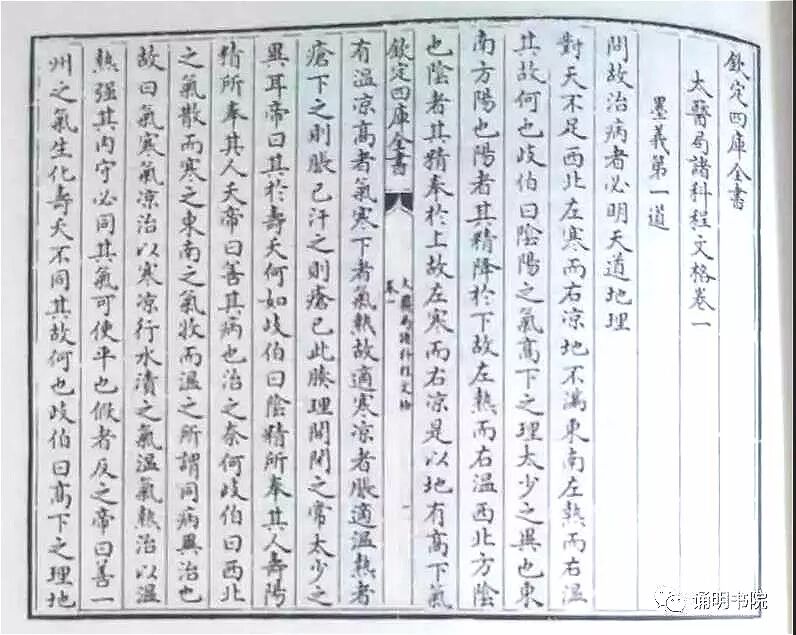 欽定四庫全書
太醫局諸科程文格卷一
墨義第一道
問故治病者必明天道地理
對天不足西北左寒而右凉地不滿東南左熱而右溫
其故何也歧伯曰陰陽之氣高下之理太少之異也東
南方陽也陽者其精降於下故左熱而右溫西北方陰
也陰者其精奉於上故左寒而右凉是以地有高下氣
欽定四庫全書
太醫局諸科程文格
卷一
有溫凉高者氣寒下者氣熱故適寒凉者脹適溫熱者
瘡下之則脹已汗之則瘡已此腠理開閉之常太少之
異耳帝曰其於壽夭何如歧伯曰陰精所奉其人壽陽
精所奉其人夭帝曰善其病也治之奈何歧伯曰西北
之氣散而寒之東南之氣收而溫之所謂同病異治也
故曰氣寒氣凉治以寒凉行水漬之氣溫氣熱治以溫
熱强其内守必同其氣可使平也假者反之帝曰善一
州之氣生化壽夭不同其故何也歧伯曰高下之理地
诵明书院